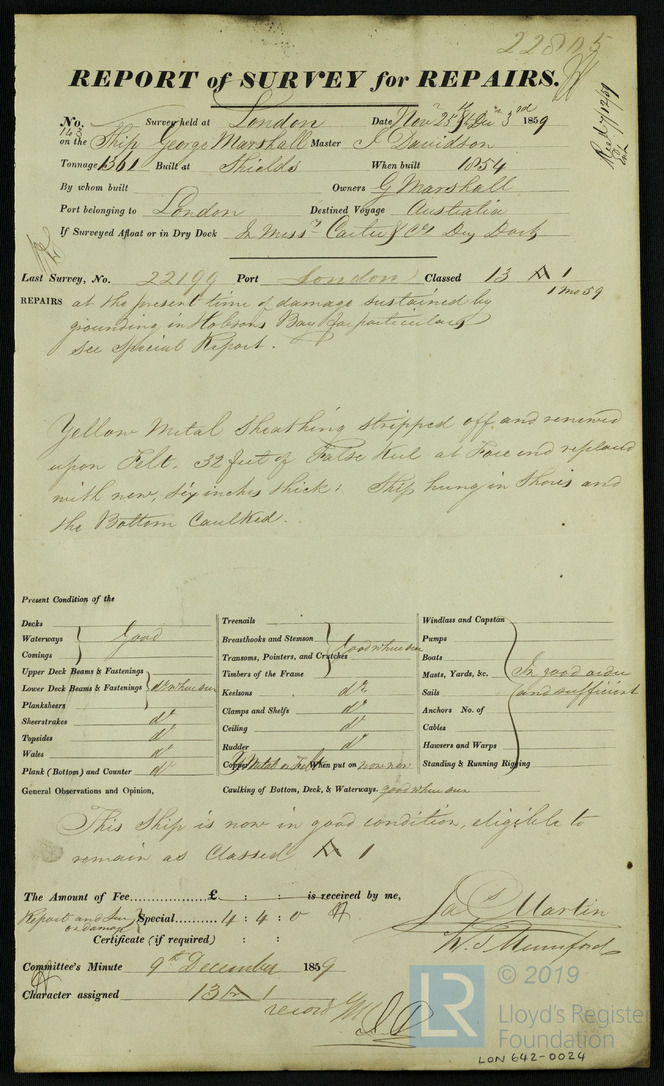 22805
REPORT of SURVEY for REPAIRS.
Recd 7/12/59
No. 143 Survey held at London Date Novr 25th & Decr 3rd 1859
on the Ship George Marshall Master J Davidson
Tonnage 1361 Built at Shields When built 1854
By whom built Owners G Marshall
Port belonging to London Destined Voyage Australia
If Surveyed Afloat or in Dry Dock In Messrs Carter & Co Dry Dock
Last Survey, No. 22199 Port London Classed 13 A 1
1 mo 59
REPAIRS at the present time of damage sustained by
grounding in Hobsons Bay for particulars
see Special Report.
Yellow Metal Sheathing stripped off, and renewed
upon Felt. 32 feet of False Keel at Fore end replaced
with new, six inches thick: Ship hung in Shores and
the Bottom Caulked.
Present Condition of the
Decks
Waterways Good
Comings
Upper Deck Beams & Fastenings
Lower Deck Beams & Fastenings do where seen
Planksheers
Sheerstrakes do
Topsides do
Wales do
Plank (Bottom) and Counter do
Treenails
Breasthooks and Stemson Good where seen
Transoms, Pointers, and Crutches
Timbers of the Frame
Keelsons do
Clamps and Shelfs do
Ceiling do
Rudder do
Copper Y Metal on Felt When put on now new
Caulking of Bottom, Deck, & Waterways. good where seen
Windlass and Capstan
Pumps
Boats
Masts, Yards, &c. In good order
Sails and sufficient
Anchors No. of
Cables
Hawsers and Warps
Standing & Running Rigging
General Observations and Opinion,
This Ship is now in good condition, eligible to
remain as Classed A 1
The Amount of Fee £ : : is received by me,
Report and Sury on damage Special 4 : 4 : 0
Certificate (if required) : :
Jas Martin
W. J. Mumford
Committee's Minute 9th December 1859
Character assigned 13 A 1
record
© 2019
LR Lloyd's Register
Foundation
LON 642-0024